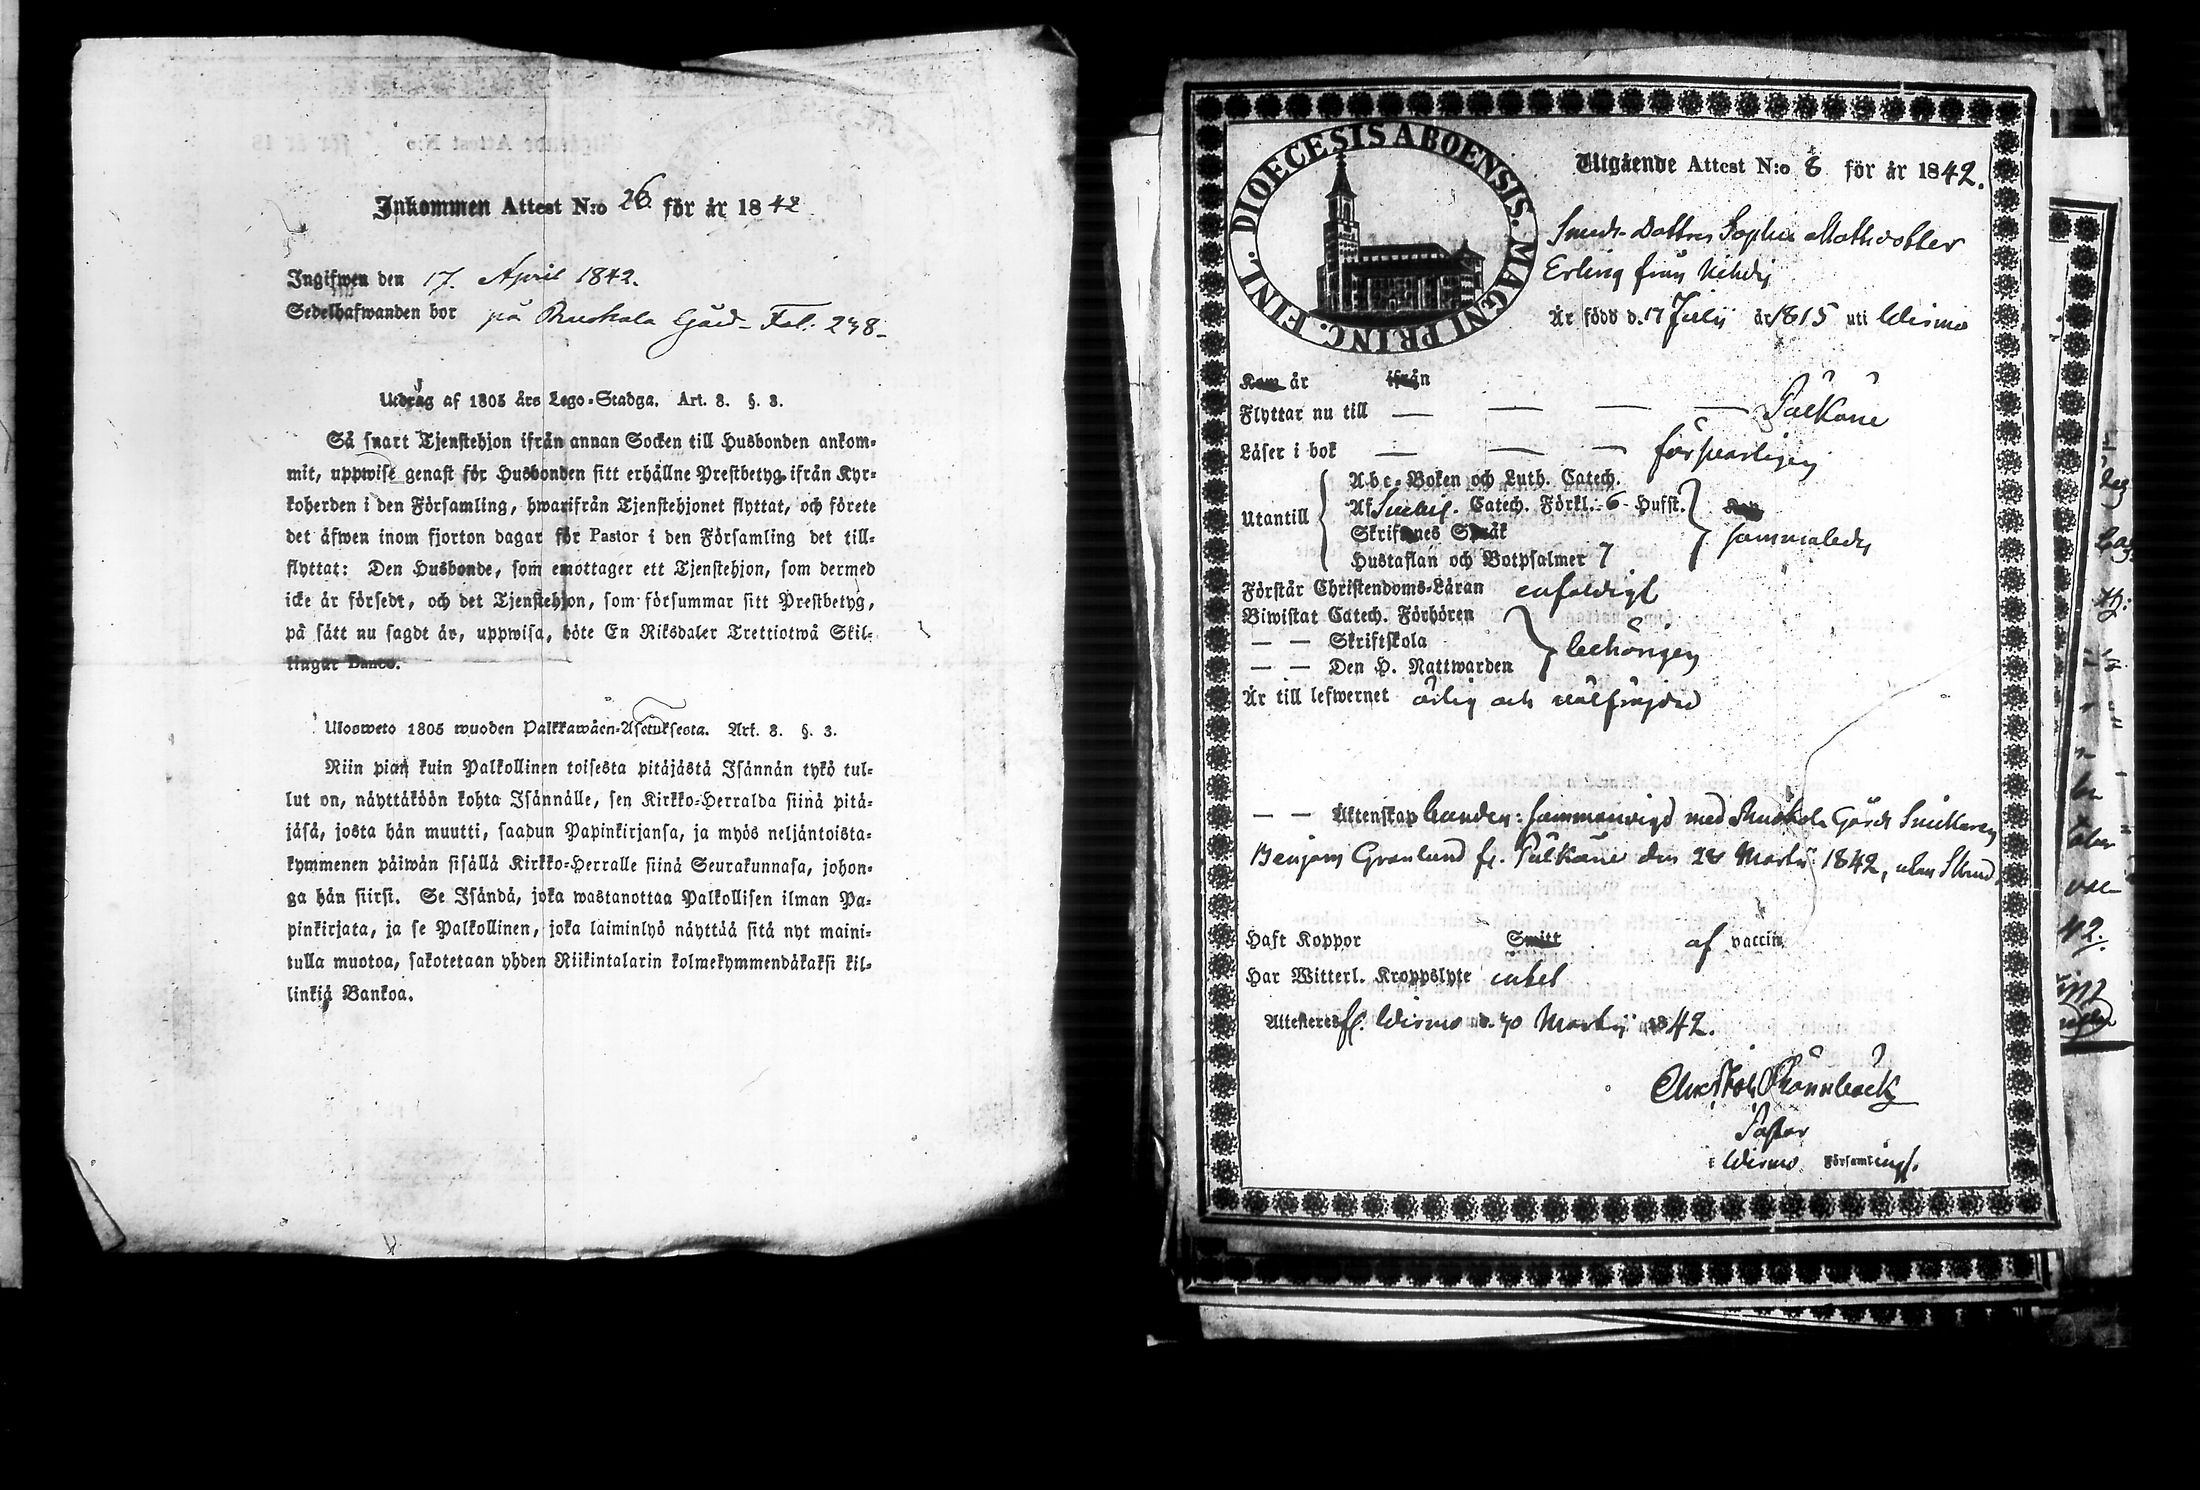 Inkommen Attest N:o 26 för år 1842
Ingifwen den 17. April 1842.
Sedelhafwanden bor på Gård Fol. 238
Utdrag af 1805 års Lego-Stadga. Art. 8. §. 3.
Så snart Tjenstehjon ifrån annan Socken till Husbonden ankom-
mit, uppwise genast för Husbonden sitt erhållne Prestbetyg ifrån Kyr-
koherden i den Församling, hwarifrån Tjenstehjonet flyttat, och förete
det äfwen inom fjorton dagar för Pastor i den Församling det till-
flyttat: Den Husbonde, som emottager ett Tjenstehjon, som dermed
icke är försedt, och det Tjenstehjon, som försummar sitt Prestbetyg,
på sätt nu sagdt är, uppwisa, böte En Riksdaler Trettiotwå Skil-
lingar Banco.
Ulosweto 1805 wuoden Palkkawäen-Asetuksesta. Art. 8. §. 3.
Niin pian kuin Palkollinen toisesta pitäjästä Isännän tykö tul-
lut on, näyttäköön kohta Isännälle, sen Kirkko-Herralda siinä pitä-
jäsä, josta hän muutti, saadun Papinkirjansa, ja myös neljäntoista-
kymmenen päiwän sisällä Kirkko-Herralle siinä Seurakunnasa, johon-
ga hän siirsi. Se Isändä, joka wastanottaa Palkollisen ilman Pa-
pinkirjata, ja se Palkollinen, joka laiminlyö näyttää sitä nyt maini-
tulla muotoa, sakotetaan yhden Riikintalarin kolmekymmendäkaksi kil-
linkiä Bankoa.
DIOECESIS ABOENSIS. MAGNI PRINC. FINL.
Utgående Attest N:o 8 för år 1842.
Smeds-Dottren Sophia Mathsdotter
Erling från
Är född d. 17 Julij år 1815 uti Wirmo
Kom år ifrån
Flyttar nu till — — — — Pälkäne
Läser i bok — — — försvarligen
Utantill
Abc-Boken och Luth. Catech.
Af Svebilj. Catech. Förkl. 6 Hufst.
Skriftenes Språk
Hustaflan och Botpsalmer 7
Kan
sammaledes
Förstår Christendoms-Läran enfaldigt
Biwistat Catech. Förhören
— — Skriftskola
— — Den H. Nattwarden
behörigen
Är till lefwernet ärlig och välfrejdad
— — Äktenskap bunden: sammanvigd med Gårds
Benjam Grönlund fr. Pälkäne den 28 Martij 1842, utan
Haft Koppor Smitt af vaccin
Har Witterl. Kroppslyte intet
Attesteres fr. Wirmo d. 30 Martij 1842.
Christoh Rönnbäck
Pastor
i Wirmo Församling.